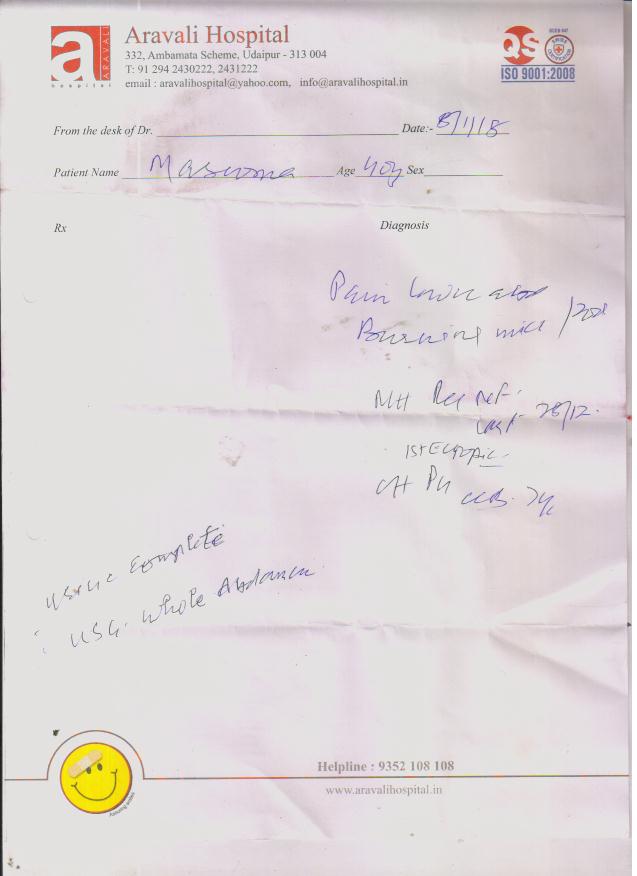 a
ARAVALI
hospital
Aravali Hospital
332, Ambamata Scheme, Udaipur - 313 004
T: 91 294 2430222, 2431222
email : aravalihospital@yahoo.com, info@aravalihospital.in
QS
ISO 9001:2008
From the desk of Dr. Date:- 8/1/18
Patient Name Masuma Age 40y Sex
Rx Diagnosis
Pain lower abd
Burning mict
MH
Last 28/12.
Ist Ectopic
OH
Urine Complete
USG. Whole Abdomen
Helpline : 9352 108 108
www.aravalihospital.in